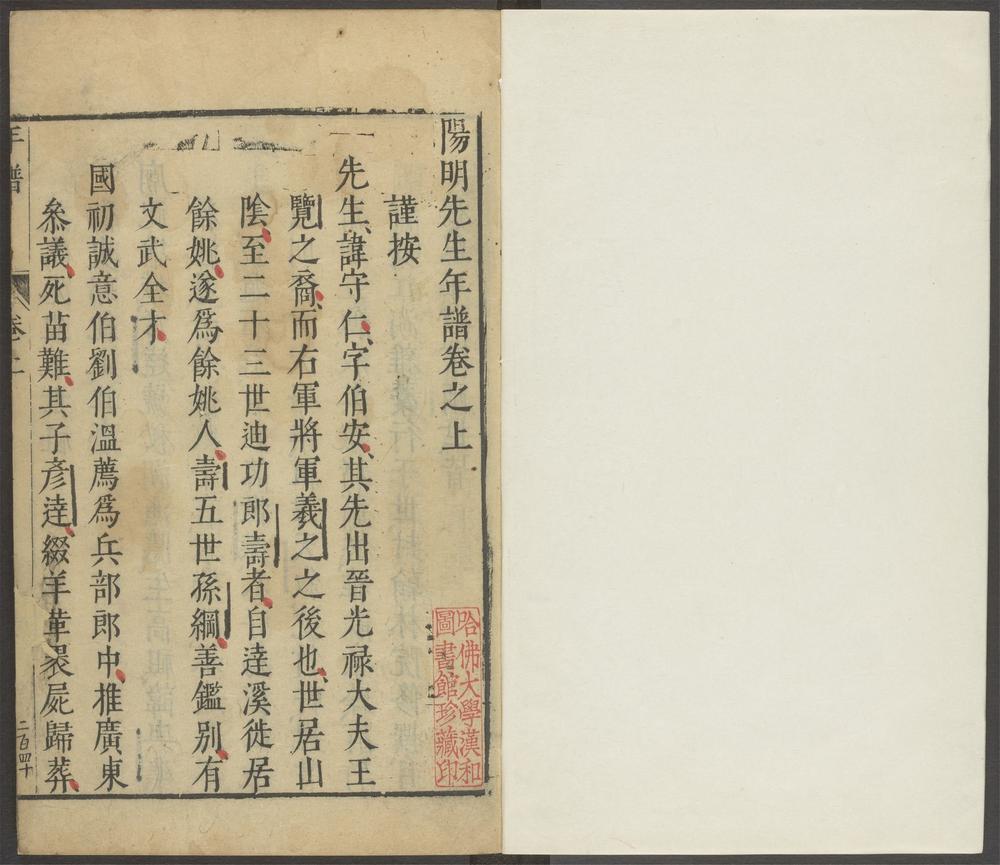 陽明先生年譜卷之上
謹按
先生諱守仁字伯安其先出晉光祿大夫王
覽之裔而右軍將軍羲之之後也世居山
陰至二十三世迪功郎壽者自達溪徙居
餘姚遂爲餘姚人壽五世孫綱善鑑别有
文武全才
國初誠意伯劉伯溫薦爲兵部郎中推廣東
叅議死苗難其子彥達綴羊革裹屍歸葬
年譜 卷上 二百四十
哈佛大學漢和
圖書館珍藏印